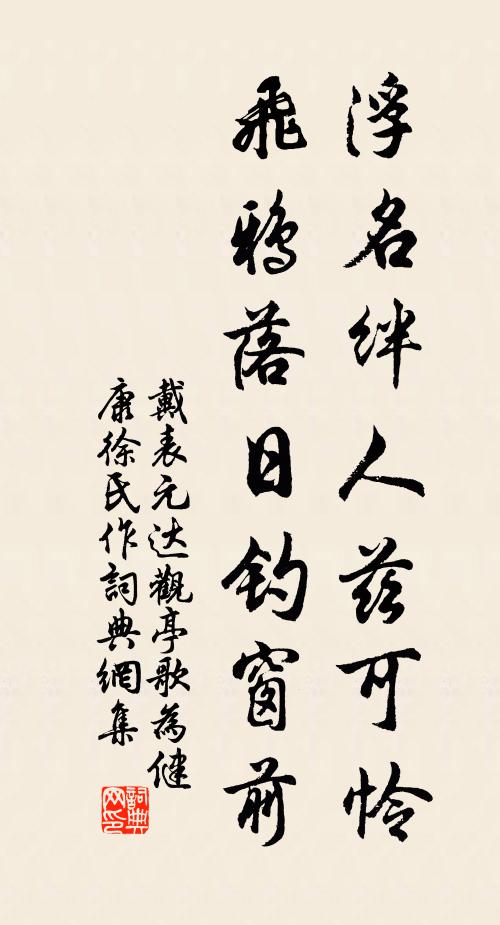 浮名绊人兹可怜
飛鸦落日钓窗前
戴表元达觀亭歌為健
康徐氏作詞典網集
詞典网印